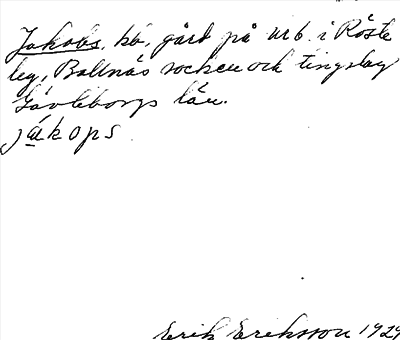 Jakobs, bb, gård på urb. i Röste
leg, Bollnäs socken och tingslag
Gävleborgs län.
jákops
Erik Eriksson 1929